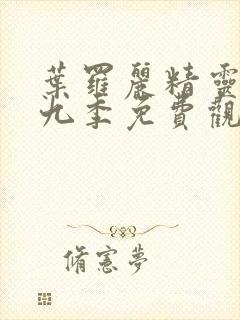 葉羅麗精靈
九季免費觀
脩憲夢